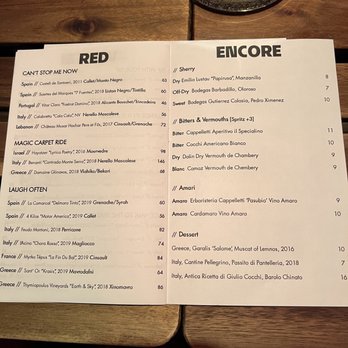 RED
CAN'T STOP NOW
Spain // Castell de Santueri, 2011 Callet/Manto Negro 45
Spain // Suertes del Marques "7 Fuentes", 2018 Listan Negro/Tintilla 60
Portugal // Vitor Claro "Foxtrot Dominó", 2018 Alicante Bouschet/Trincadeira
Italy // Calabretta "Cala Cala", NV Nerello Mascalese
Lebanon // Château Musar Hochar Pere et Fils, 2017 Cinsault/Grenache 72
MAGIC CARPET RIDE
Israel // "Lyrica Poetry", 2016 Mourvedre 98
Italy // Benanti "Contrada Monte Serra", 2018 Nerello Mascalese 146
Greece // Domaine Glinavos, 2018 Vlahiko/Bekari 68
LAUGH OFTEN
Spain // La Comarcal "Delmoro Tinto", 2019 Grenache/Syrah 60
Spain // 4 Kilos "Motor America", 2019 Callet 56
Italy // Feudo Montoni, 2018 Perricone 82
Italy // "Chora Rosso", 2019 Magliocco 74
France // Mylène "La Fin Du Bal", 2019 Cinsault 84
Greece // Sant' Or "Krasis", 2019 Mavrodafni 64
Greece // Thymiopoulos Vineyards "Earth & Sky", 2018 Xinomavro 86
ENCORE
// Sherry
Dry Emilio Lustau "Papirusa", Manzanilla 8
Off-Dry Bodegas Barbadillo, Oloroso 7
Sweet Bodegas Gutierrez Colosia, Pedro Ximenez 10
// Bitters & Vermouths [Spritz +3]
Bitter Cappelletti Aperitivo il Specialino 11
Bitter Cocchi Americano Bianco 10
Dry Dolin Dry Vermouth de Chambery 9
Blanc Comoz Vermouth de Chambery 9
// Amari
Amaro Erboristeria Cappelletti 'Pasubio' Vino Amaro 9
Amaro Cardamaro Vino Amaro 10
// Dessert
Greece, Garalis 'Salome', Muscat of Lemnos, 2016 10
Italy, Cantine Pellegrino, Passito di Pantelleria, 2018 7
Italy, Antica Ricetta di Giulio Cocchi, Barolo Chinato 16